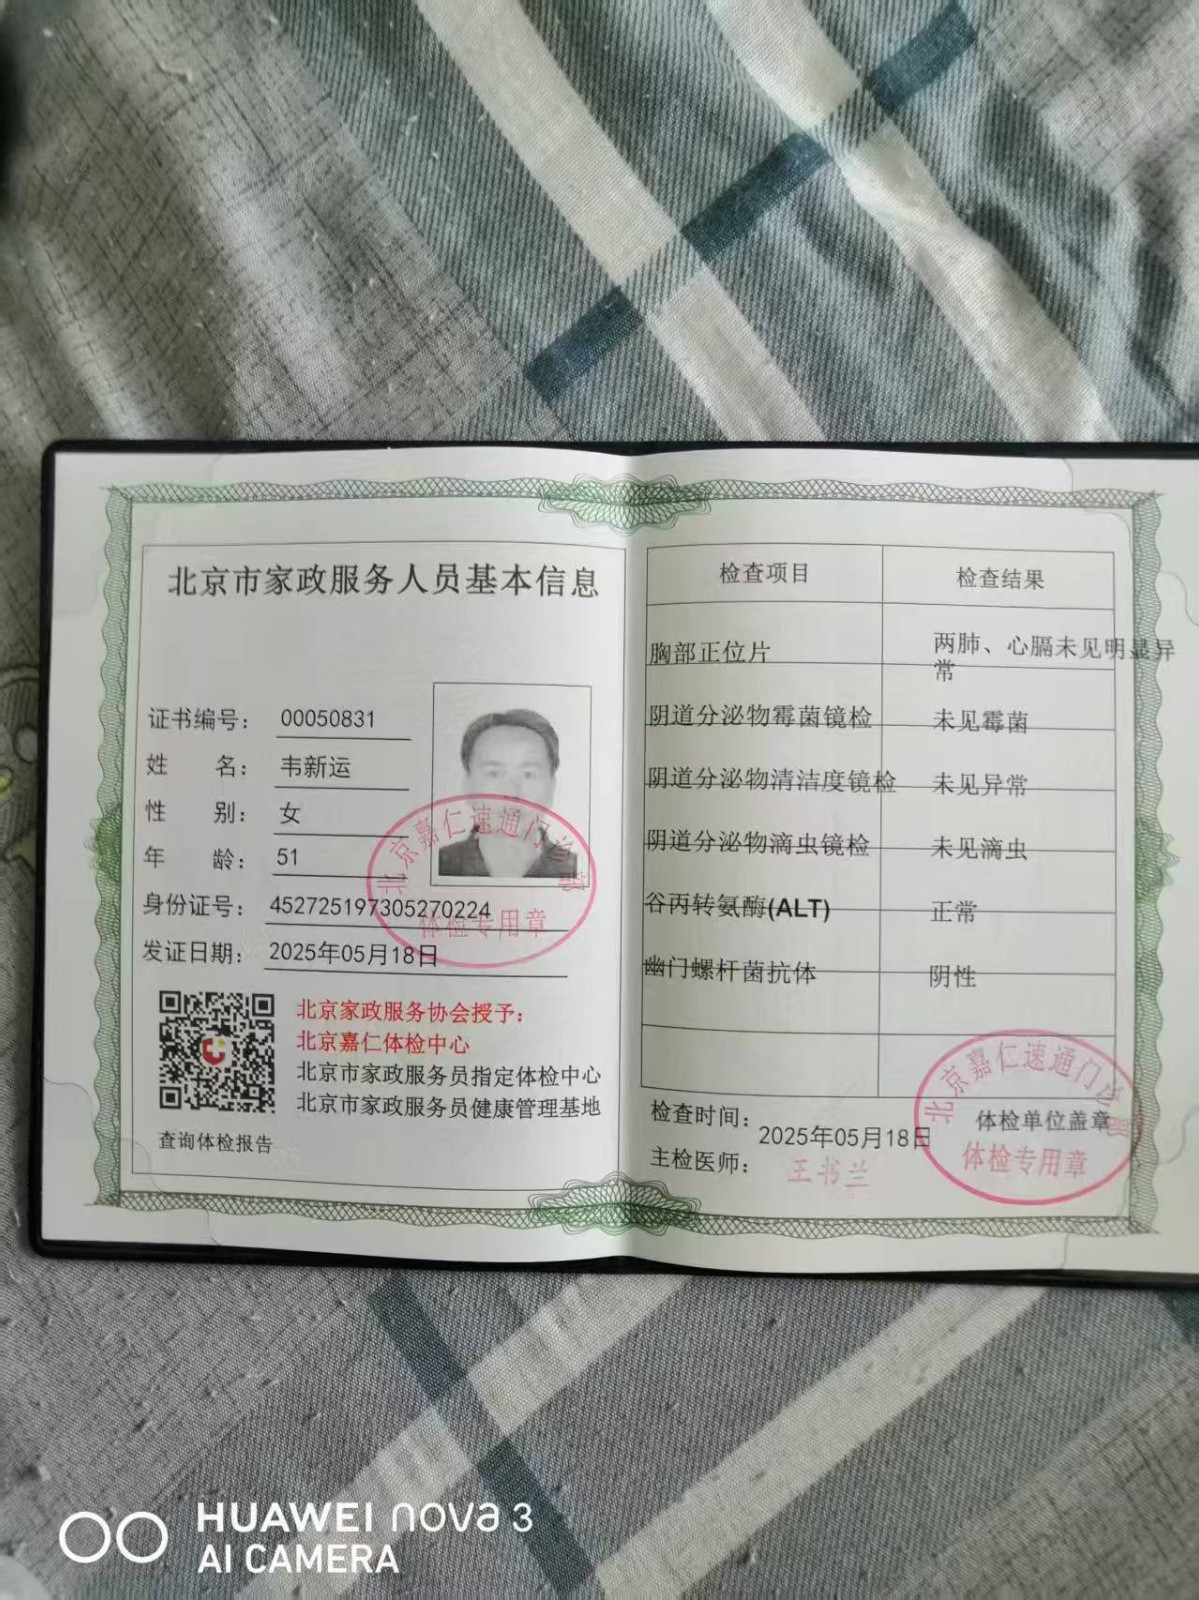 北京市家政服务人员基本信息
证书编号: 00050831
姓 名: 韦新运
性 别: 女
年 龄: 51
身份证号: 452725197305270224
发证日期: 2025年05月18日
北京嘉仁速通门诊部
体检专用章
北京家政服务协会授予:
北京嘉仁体检中心
北京市家政服务员指定体检中心
北京市家政服务员健康管理基地
查询体检报告
检查项目 检查结果
胸部正位片 两肺、心膈未见明显异
常
阴道分泌物霉菌镜检 未见霉菌
阴道分泌物清洁度镜检 未见异常
阴道分泌物滴虫镜检 未见滴虫
谷丙转氨酶(ALT) 正常
幽门螺杆菌抗体 阴性
检查时间: 2025年05月18日
体检单位盖章
主检医师: 王书兰
北京嘉仁速通门诊部
体检专用章
HUAWEI nova 3
AI CAMERA